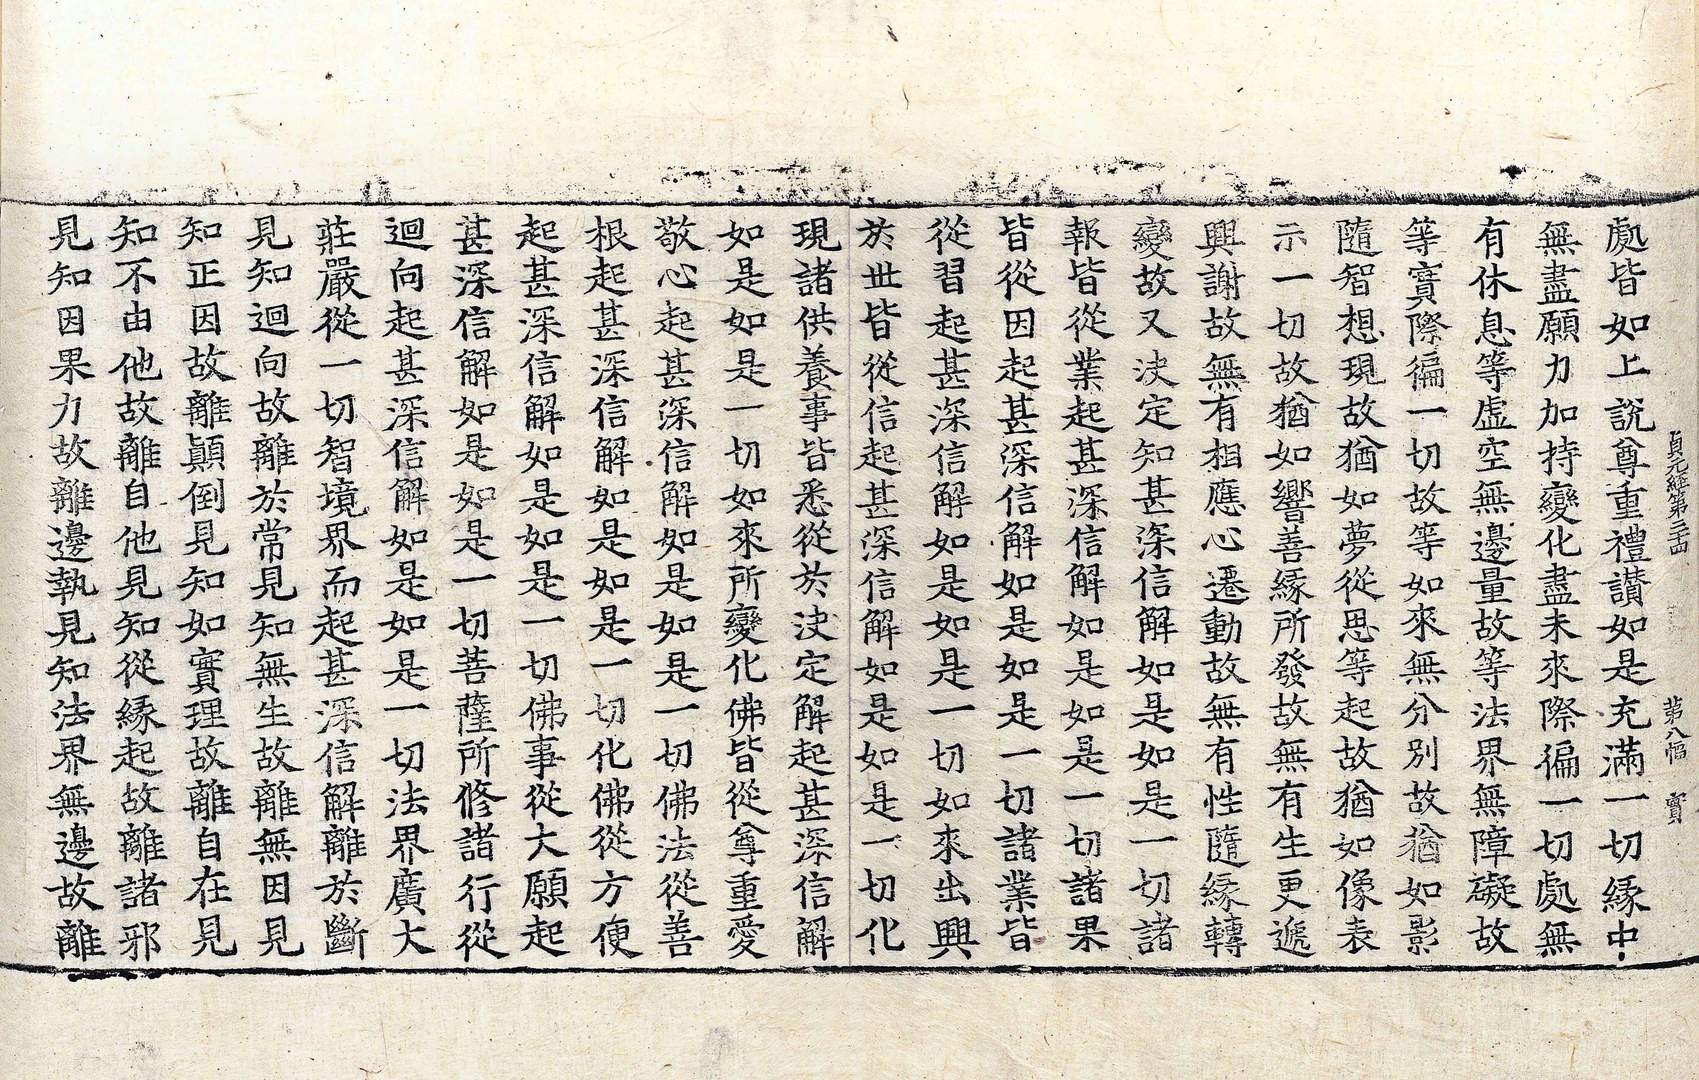 貞元経第三十四　第八幅　實
處皆如上說尊重禮讃如是充滿一切緣中
無盡願力加持變化盡未來際徧一切處無
有休息等虛空無邊量故等法界無障礙故
等實際徧一切故等如來無分別故猶如影
隨智想現故猶如夢從思等起故猶如像表
示一切故猶如響善緣所發故無有生更遞
興謝故無有相應心遷動故無有性隨緣轉
變故又决定知甚深信解如是如是一切諸
報皆從業起甚深信解如是如是一切諸果
皆從因起甚深信解如是如是一切諸業皆
從習起甚深信解如是如是一切如來出興
於世皆從信起甚深信解如是如是一切化
現諸供養事皆悉從於决定解起甚深信解
如是如是一切如來所變化佛皆從尊重愛
敬心起甚深信解如是如是一切佛法從善
根起甚深信解如是如是一切化佛從方便
起甚深信解如是如是一切佛事從大願起
甚深信解如是如是一切菩薩所修諸行從
迴向起甚深信解如是如是一切法界廣大
莊嚴從一切智境界而起甚深信解離於斷
見知迴向故離於常見知無生故離無因見
知正因故離顛倒見知如實理故離自在見
知不由他故離自他見知從緣起故離諸邪
見知因果力故離邊執見知法界無邊故離